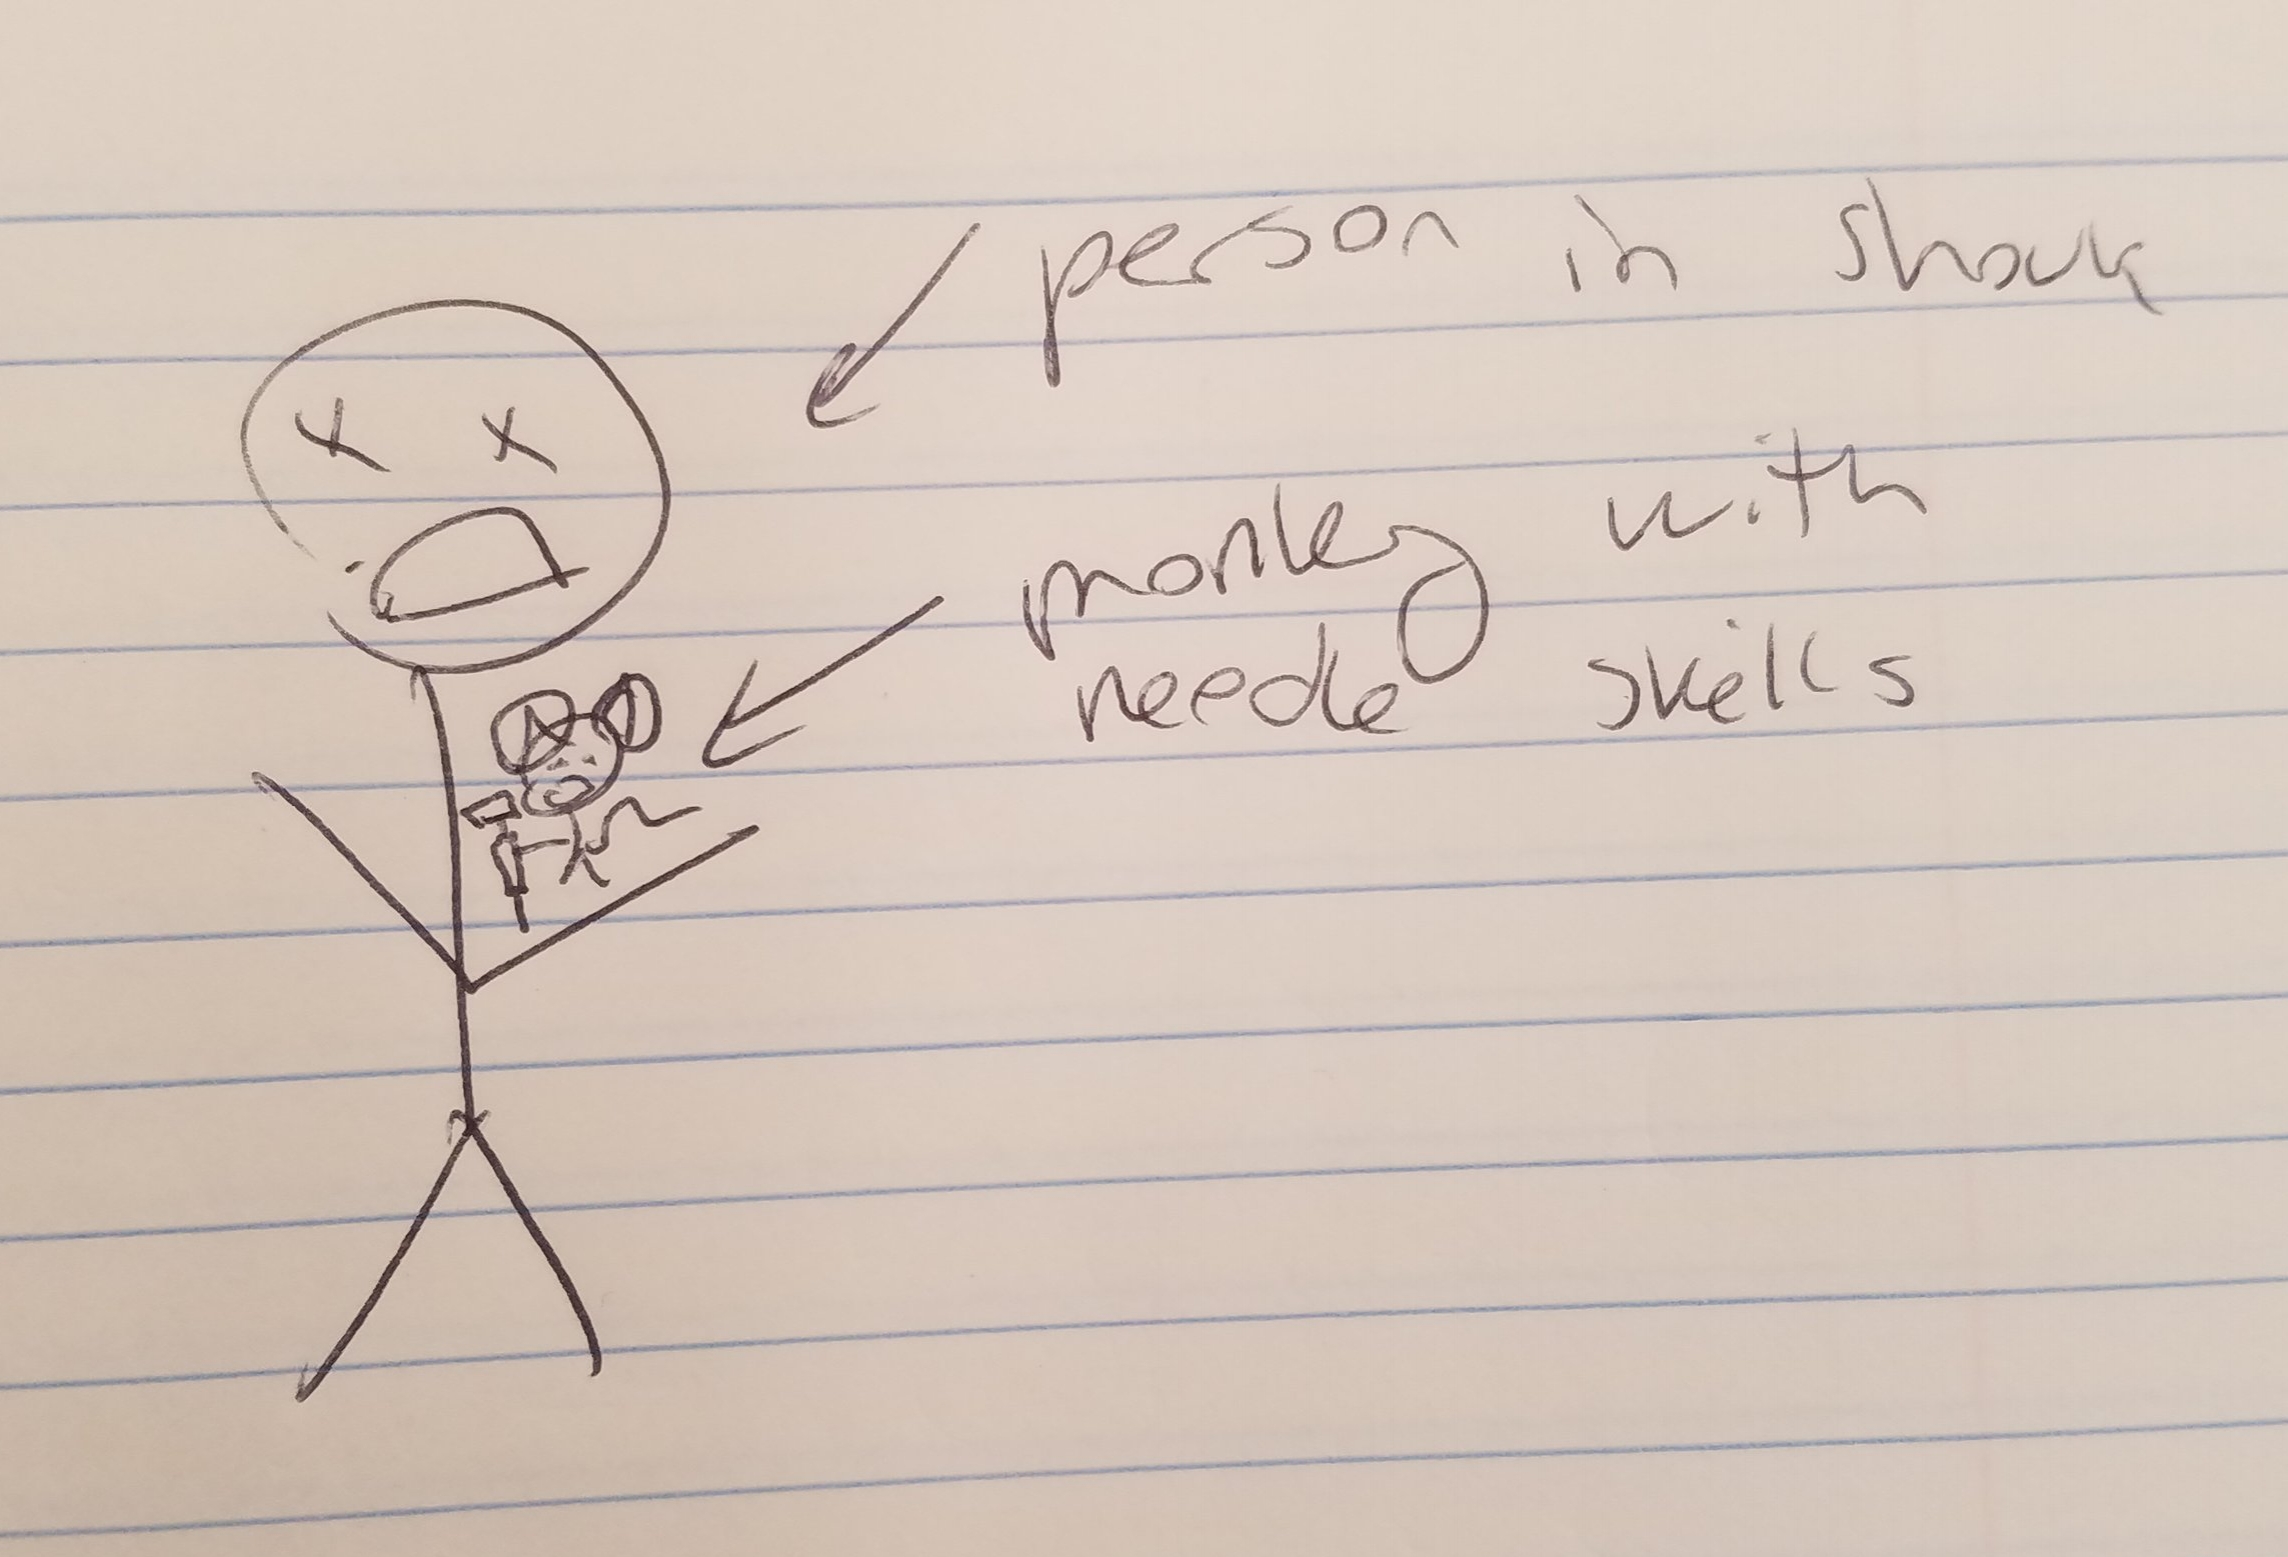 person in shock
monkey with
needle skills